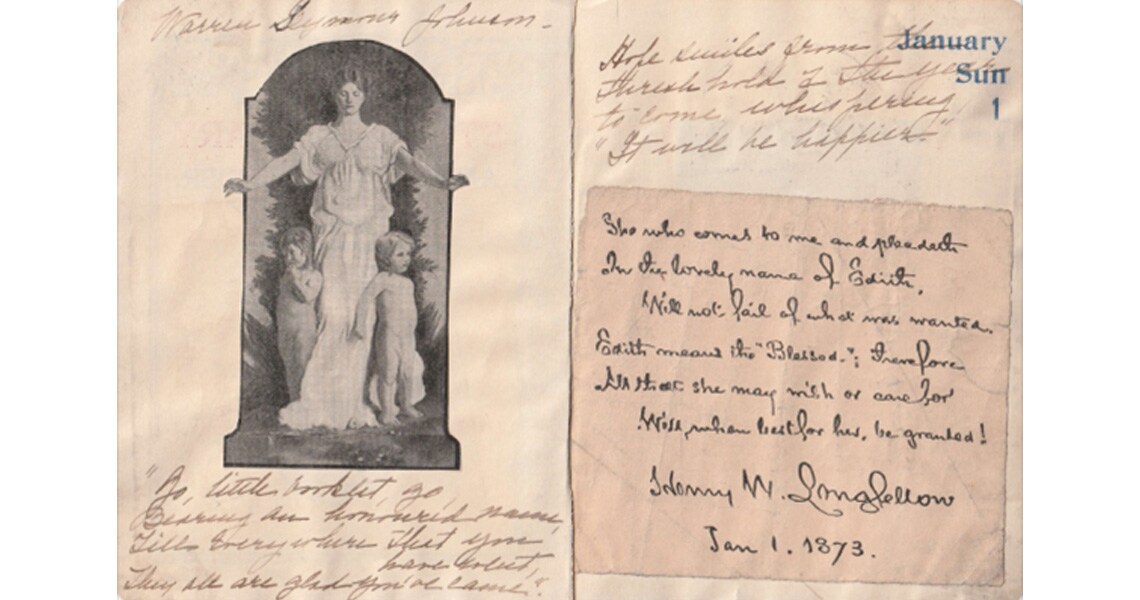 Warren Seymour Johnson-
"Go, little booklet, go,
Bearing an honoured name,
Till everywhere that you
have went,
They all are glad you've came".
January
Sun
1
Hope smiles from the
threshhold of the year
to come, whispering
"It will be happier."
She who comes to me and pleadeth
In the lovely name of Edith,
Will not fail of what was wanted.
Edith means the "Blessed."; therefore
All that she may wish or care for
Will, when best for her, be granted!
Henry W. Longfellow
Jan 1. 1873.